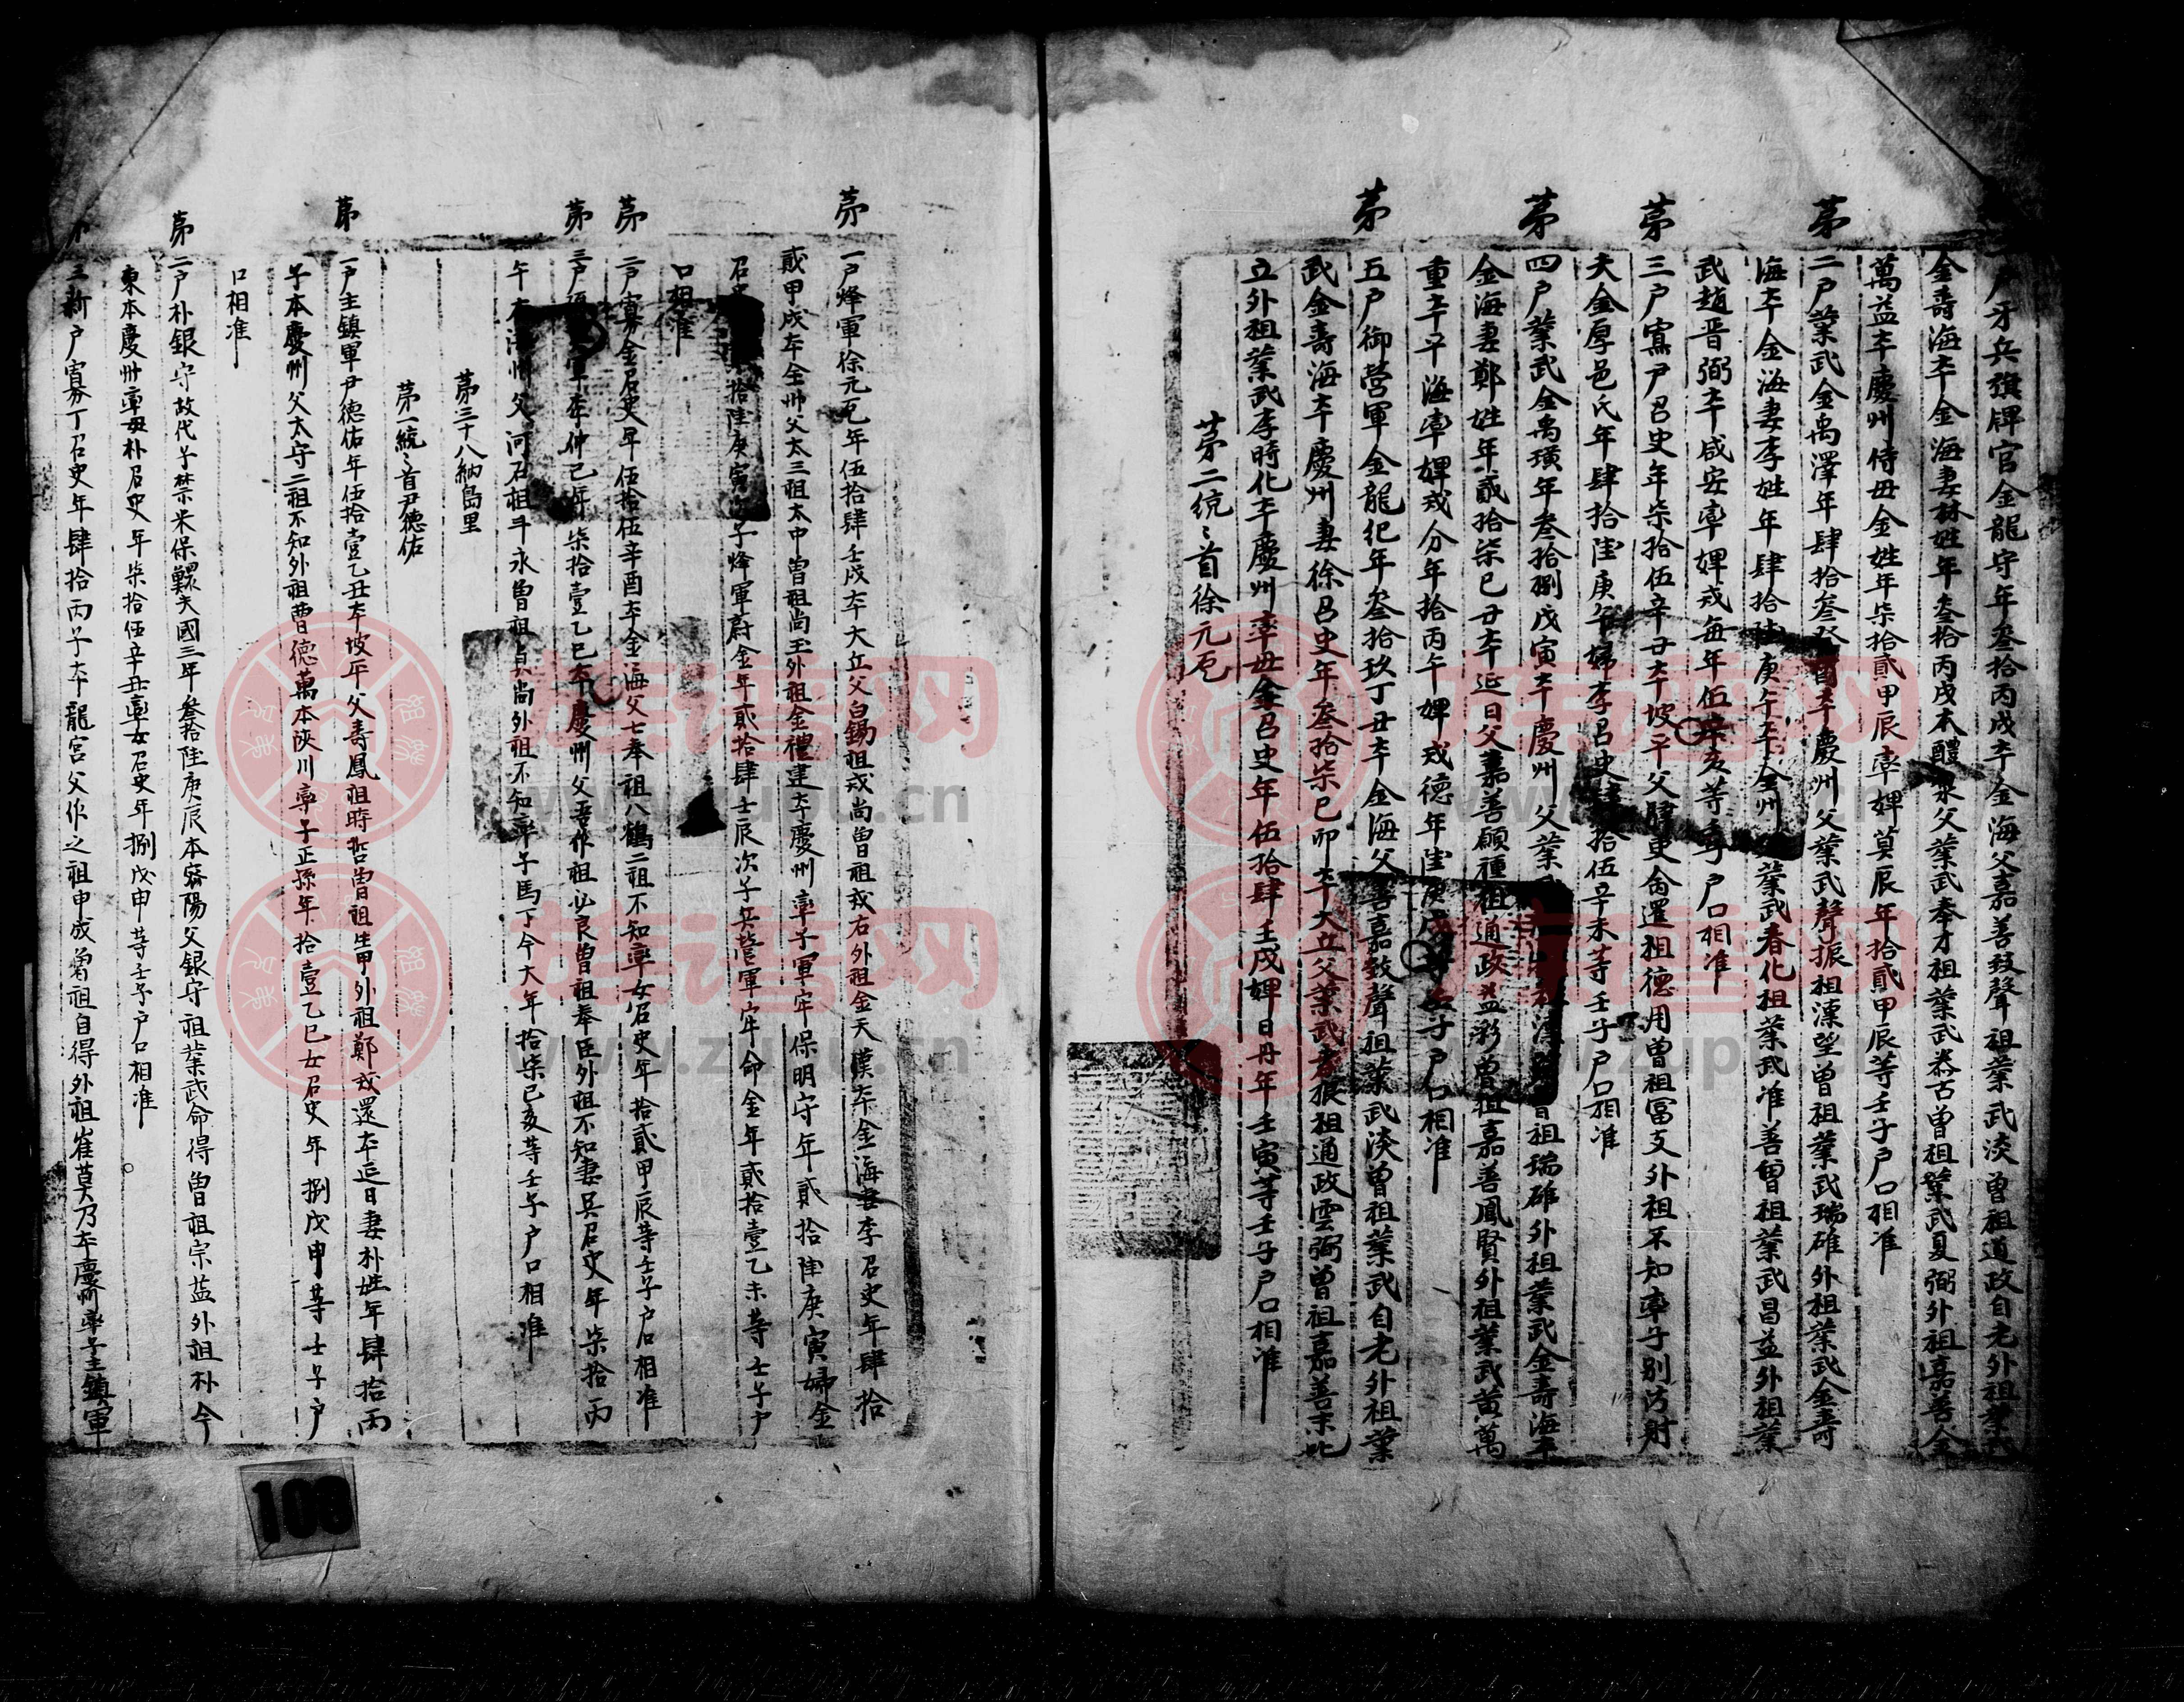 戶牙兵旗牌官金龍守年叁拾丙戌本金海父嘉善致聲祖業武淡曾祖通政自老外祖業武
金壽海本金海妻林姓年叁拾丙戌本醴泉父業武奉才祖業武泰古曾祖業武夏弼外祖嘉善金
萬益本慶州侍母金姓年柒拾貳甲辰率婢莫辰年拾貳甲辰等壬子戶口相准
第二戶業武金禹澤年肆拾叁 酉本慶州父業武聲振祖漢望曾祖業武瑞碓外祖業武金壽
海本金海妻李姓年肆拾 庚午本全州 業武春化祖業武准善曾祖業武昌益外祖業
武趙晋弼本咸安率婢戎每年伍 亥等壬子戶口相准
第三戶寡尹召史年柒拾伍辛丑本坡平父肆吏 還祖德用曾祖冨支外祖不知率子別 射
夫金厚邑氏年肆拾陸庚午婦李召史 拾伍辛未等壬子戶口相准
第四戶業武金禹璜年叁拾捌戊寅本慶州父業 曾祖瑞碓外祖業武金壽海本
金海妻鄭姓年貳拾柒己丑本延日父嘉善願種祖通政益彩曾祖嘉善鳳賢外祖業武黃萬
重本平海率婢戎分年拾丙午婢戎德年 庚戌等壬子戶口相准
第五戶御營軍金龍杞年叁拾玖丁丑本金海父嘉善致聲祖業武淡曾祖業武自老外祖業
武金壽海本慶州妻徐召史年叁拾柒己卯本大丘父業武 祖通政雲弼曾祖嘉善末叱
立外祖業武李時化本慶州率母金召史年伍拾肆壬戌婢日丹年壬寅等壬子戶口相准
第二統〻首徐元
第一戶烽軍徐元 年伍拾肆壬戌本大丘父白錫祖戎尚曾祖戎右外祖金天 本金海妻李召史年肆拾
貳甲戌本全州父太三祖太中曾祖尚玉外祖金禮建本慶州率子軍牢保明守年貳拾陸庚寅婦金
召史 拾陸庚寅 子烽軍蔚金年貳拾肆壬辰次子兵營軍牢命金年貳拾壹乙未等壬子戶
口相准
第二戶寡金召史年伍拾伍辛酉本金海父七奉祖八鶴二祖不知率女召史年拾貳甲辰等壬子戶口相准
第三戶 軍李仲己年柒拾壹乙巳本慶州父吾作祖必良曾祖奉臣外祖不知妻吳召史年柒拾丙
午本 州父河石祖斗永曾祖貞尚外祖不知率子馬丁今大年拾柒己亥等壬子戶口相准
第三十八納島里
第一統〻首尹德佑
第一戶主鎮軍尹德佑年伍拾壹乙丑本坡平父壽鳳祖時哲曾祖 外祖鄭戎還本延日妻朴姓年肆拾丙
子本慶州父太守二祖不知外祖曹德萬本陝川率子正孫年拾壹乙巳女召史年捌戊申等士子戶
口相准
第二戶朴銀守故代子禁米保 夫國三年叁拾陸庚辰本密陽父銀守祖業武命得曾祖宗益外祖朴今
東本慶州率母朴召史年柒拾伍辛丑率女召史年捌戊申等壬子戶口相准
三新戶寡丁召史年肆拾丙子本龍宮父作之祖申成曾祖自得外祖崔莫乃本慶州率子主鎮軍
108
族谱网
www.zupu.cn
族谱网
www.zupu.cn
族谱网
www.zupu.cn
族谱网
www.zupu.cn